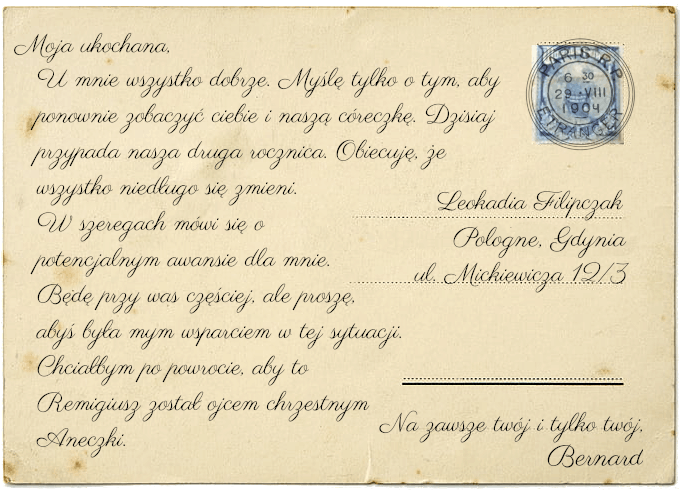 Moja ukochana,
U mnie wszystko dobrze. Myślę tylko o tym, aby
ponownie zobaczyć ciebie i naszą córeczkę. Dzisiaj
przypada nasza druga rocznica. Obiecuję, że
wszystko niedługo się zmieni.
W szeregach mówi się o
potencjalnym awansie dla mnie.
Będę przy was częściej, ale proszę,
abyś była mym wsparciem w tej sytuacji.
Chciałbym po powrocie, aby to
Remigiusz został ojcem chrzestnym
Aneczki.
PARIS R.P.
6 30
29 VIII
1904
ETRANGER
Leokadia Filipczak
Pologne, Gdynia
ul. Mickiewicza 12/3
Na zawsze twój i tylko twój,
Bernard